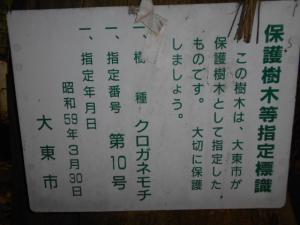 保護樹木等指定標識
この樹木は、大東市が
保護樹木として指定した
ものです。 大切に保護
しましょう。
一、樹種 クロガネモチ
一、指定番号 第10号
一、指定年月日
昭和59年3月30日
大東市